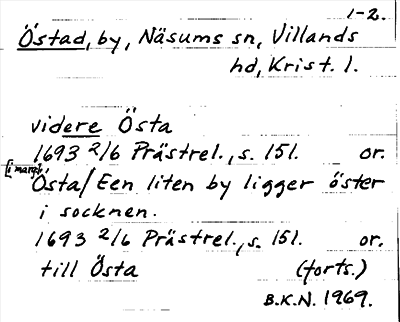 1-2.
Östad, by, Näsums sn, Villands
hd, Krist. l.
videre Östa
1693 2/6 Prästrel., s. 151. or.
[i marg.]
Östa/Een liten by ligger öster
i socknen.
1693 2/6 Prästrel., s. 151. or.
till Östa (forts.)
B.K.N. 1969.